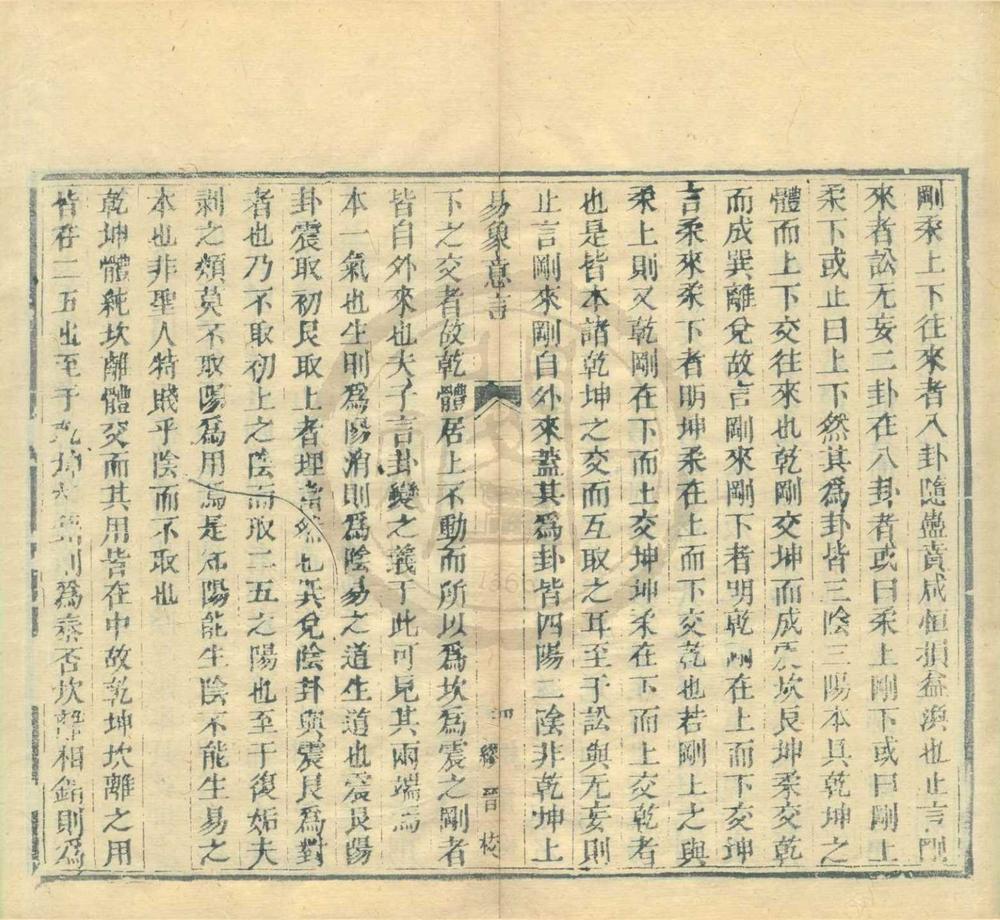 剛柔上下往來者八卦隨蠱賁咸恒損益渙也止言剛
來者訟无妄二卦在八卦者或曰柔上剛下或曰剛上
柔下或止曰上下然其為卦皆三陰三陽本具乾坤之
體而上下交往來也乾剛交坤而成震坎艮坤柔交乾
而成巽離兌故言剛來剛下者明乾剛在上而下交坤
言柔來柔下者明坤柔在上而下交乾也若剛上之與
柔上則又乾剛在下而上交坤坤柔在下而上交乾者
也是皆本諸乾坤之交而互取之耳至于訟與无妄則
止言剛來剛自外來蓋其為卦皆四陽二陰非乾坤上
易象意言
四
繆晉校
下之交者故乾體居上不動而所以為坎為震之剛者
皆自外來也夫子言卦變之義于此可見其兩端焉
本一氣也生則為陽消則為陰易之道生道也震艮陽
卦震取初艮取上者理當然也巽兌陰卦與震艮為對
者也乃不取初上之陰而取二五之陽也至于復姤夬
剥之類莫不取陽為用焉是知陽能生陰不能生易之
本也非聖人特賤乎陰而不取也
乾坤體純坎離體交而其用皆在中故乾坤坎離之用
皆存二五也至于乾坤相則為泰否坎離相錯則為